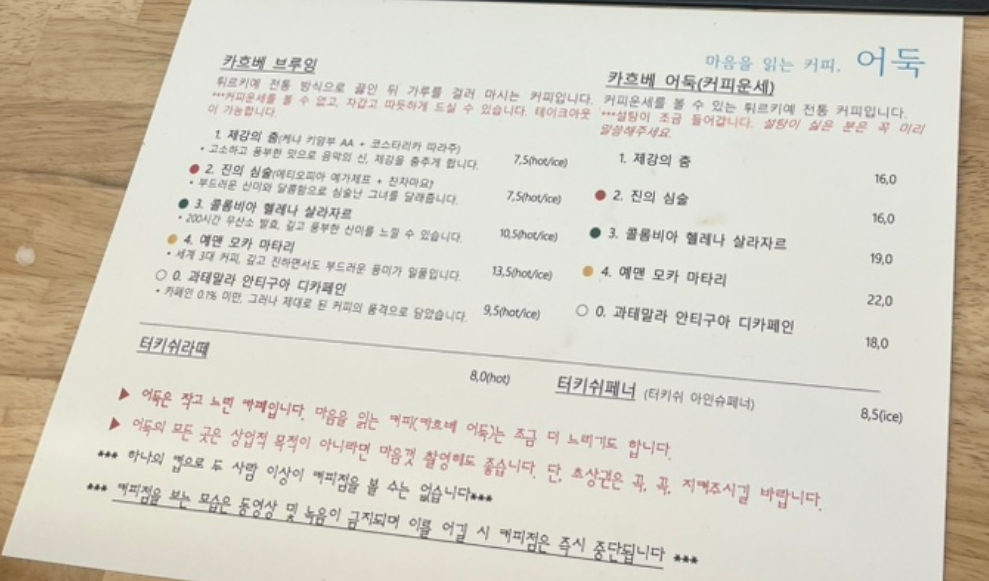 마음을 읽는 커피. 어둑
카흐베 브루잉
튀르키예 전통 방식으로 끓인 뒤 가루를 걸러 마시는 커피입니다.
***커피운세를 볼 수 없고, 차갑고 따듯하게 드실 수 있습니다. 테이크아웃
이 가능합니다.
1. 제강의 춤(케냐 키암부 AA + 코스타리카 따라주)
• 고소하고 풍부한 맛으로 음악의 신, 제강을 춤추게 합니다. 7,5(hot/ice)
2. 진의 심술(에티오피아 예가체프 + 찬차마요)
• 부드러운 산미와 달콤함으로 심술난 그녀를 달래줍니다. 7,5(hot/ice)
3. 콜롬비아 헬레나 살라자르
• 200시간 무산소 발효, 깊고 풍부한 산미를 느낄 수 있습니다. 10,5(hot/ice)
4. 예맨 모카 마타리
• 세계 3대 커피, 깊고 진하면서도 부드러운 풍미가 일품입니다. 13,5(hot/ice)
0. 과테말라 안티구아 디카페인
• 카페인 0.1% 미만, 그러나 제대로 된 커피의 품격으로 담았습니다. 9,5(hot/ice)
카흐베 어둑(커피운세)
커피운세를 볼 수 있는 튀르키예 전통 커피입니다.
***설탕이 조금 들어갑니다. 설탕이 싫은 분은 꼭 미리
말씀해주세요.
1. 제강의 춤 16,0
2. 진의 심술 16,0
3. 콜롬비아 헬레나 살라자르 19,0
4. 예맨 모카 마타리 22,0
0. 과테말라 안티구아 디카페인 18,0
터키쉬라떼 8,0(hot)
터키쉬페너 (터키쉬 아인슈페너) 8,5(ice)
▶ 어둑은 작고 느린 카페입니다. 마음을 읽는 커피(카흐베 어둑)는 조금 더 느리기도 합니다.
▶ 어둑의 모든 곳은 상업적 목적이 아니라면 마음껏 촬영해도 좋습니다. 단, 초상권은 꼭, 꼭, 지켜주시길 바랍니다.
*** 하나의 컵으로 두 사람 이상이 커피점을 볼 수는 없습니다***
*** 커피점을 보는 모습은 동영상 및 녹음이 금지되며 이를 어길 시 커피점은 즉시 중단됩니다 ***